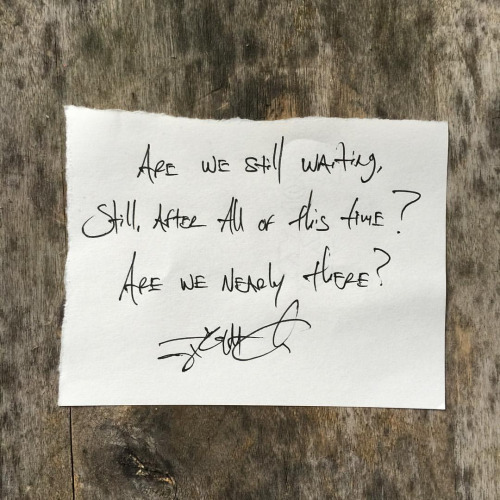 Are we still waiting,
Still, After All of this time?
Are we nearly there?